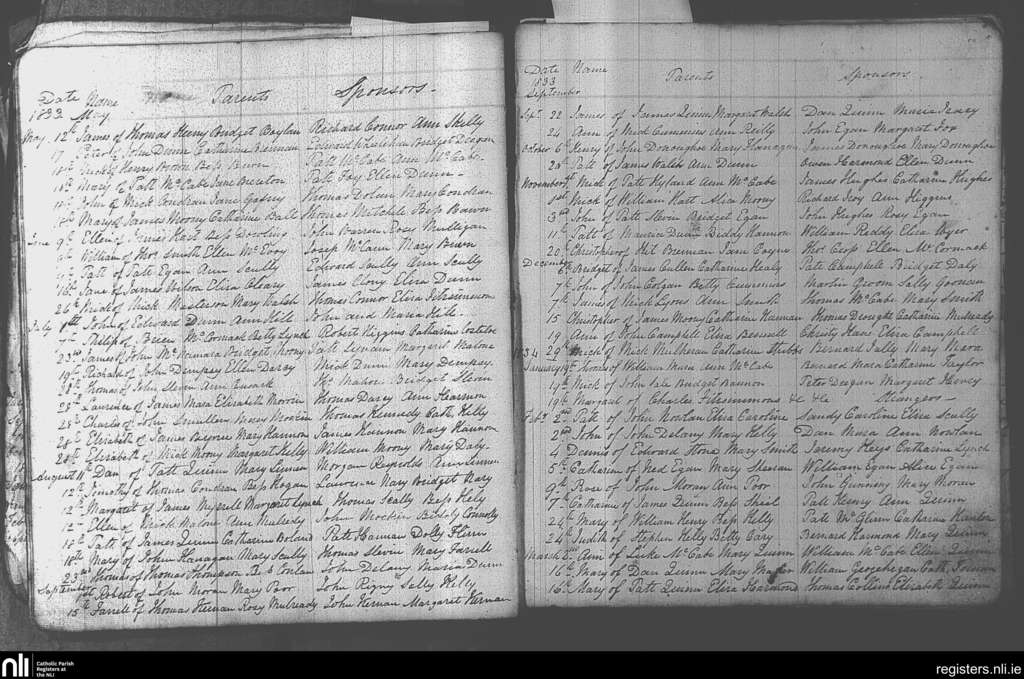 Date Name Parents Sponsors
1833 May
May 12th James of Thomas Henry Bridget Boylan Richard Connor Ann Skelly
17 Peter of John Dunne Catharine Brennan Edward Bridget Deegan
Mick of Henry Brown Bess Bawn Patt McCabe Ann McCabe
18th Mary of Patt McCabe Jane Bruton Patt Fay Ellen Dunn
John of Mick Condran Jane Gafney Thomas Dolan Mary Condran
Mary of James Moony Catharine Thomas Mitchle Bess Bawn
June 9th Ellen of James Hart Bess Dowling John Warren Rosy Mulligan
William of Thos Smith Ellen McEvoy Joseph McCann Mary Brien
Patt of Patt Egan Ann Scully Edward Scully Ann Scully
16th Jane of James Wilson Eliza Cleary James Clony Eliza Dunn
26th Mick of Mick Masterson Mary Walsh Thomas Connor Eliza Fitzsimmons
July 1st John of Edward Dunn Ann Hill John and Maria Hill
7th Philip of Brien McCormack Betty Lynch Robert Higgins Catharine
23rd James of John McNamara Bridget Moony Patt Lynam Margaret Malone
19th Richard of John Dempsey Ellen Darcy Mick Dunn Mary Dempsey
Thomas of John Slevin Ann Thos Mahon Bridget Slevin
28th Laurence of James Mara Elizabeth Thomas Darcy Ann Hearnon
28th Charles of John Thomas Kennedy Cath Kelly
28th Elizabeth of James Mary Hannon James Hannon Mary Hannon
28th Elizabeth of Mick Moony Margaret Kelly William Moony Mary Daly
August 11th Dan of Patt Quinn Mary Lynam Morgan Reynolds
12th Timothy of Thomas Condran Bess Hogan Laurence Nary Bridget Nary
12th Margaret of James Margaret Lynch Thomas Scally Bess Hely
12 Ellen of Mick Malone Ann Mulready John Biddy Connolly
18th Patt of James Quinn Catharine Boland Patt Hannon Dolly Flinn
18th Mary of John Hanagan Mary Scully Thomas Slevin Mary Farrell
23rd Thomas of Thomas Thompson Conlan John Delany Maria Dunn
September Robert of John Moran Mary Poor John Sally Kelly
15th Farrell of Thomas Kernan Rosy Mulready John Kernan Margaret Kernan
Date Name Parents Sponsors
1833
September
Sept 22 James of James Quinn Margaret Walsh Dan Quinn Maria Leacy
24 Ann of Ned Cummins Ann Reilly John Egan Margaret Fox
October 6th Henry of John Donoughoe Mary Flanagan James Donoughoe Mary Donoughoe
20th Patt of James Walsh Ann Dunn Owen Hermond Ellen Dunn
November 1st Mick of Patt Hyland Ann McCabe James Hughes Catharine Hughes
1st Mick of William Hatt Alice Moony Richard Ivoy Ann Higgins
3rd John of Patt Slevin Bridget Egan John Hughes Rosy Egan
11th Patt of Maurice Dunn Biddy Hannon William Reddy Eliza Dyer
20th Christopher of Phil Brennan Jane Coyne Thos Ellen McCormack
December 2nd Bridget of James Cullen Catharine Healy Patt Campbell Bridget Daly
7th John of John Colgan Betty Martin Groom Sally
7th James of Mick Lyons Ann Smith Thomas McCabe Mary Smith
15 Christopher of James Moony Catharine Kernan Thomas Drought Catharine Mulready
19 Ann of John Campbell Eliza Christy Eliza Campbell
1834 29th Mick of Mick Mulheran Catharine Stubbs Bernard Lally Mary Mara
January 19th Thomas of William Mara Ann McCabe Bernard Mara Catharine Taylor
19th Mick of John Bridget Bannon Peter Deegan Margaret Henry
19th Margaret of Charles Fitzsimmons &c &c Strangers
Feb 2nd Patt of John Nowlan Eliza Caroline Sandy Caroline Eliza Scully
2nd John of John Delany Mary Kelly Dan Mara Ann Nowlan
4 Dennis of Edward Stone Mary Smith Jeremy Keys Catharine Lynch
5th Catharine of Ned Egan Mary Sheran William Egan Alice Egan
9th Rose of John Moran Ann Poor John Gunning Mary Moran
7th Catharine of James Quinn Bess Shiel Patt Henry Ann Quinn
24th Mary of William Henry Bess Kelly Patt McGlinn Catharine
24th Judith of Stephen Kelly Betty Cary Bernard Hammond Mary Quinn
March 2nd Ann of Luke McCabe Mary Quinn William McCabe Ellen Quinn
16th Mary of Dan Quinn Mary William Geoghegan Cath
16th Mary of Patt Quinn Eliza Harmond Thomas Collins Elizabeth Quinn
nli Catholic Parish Registers at the NLI
registers.nli.ie